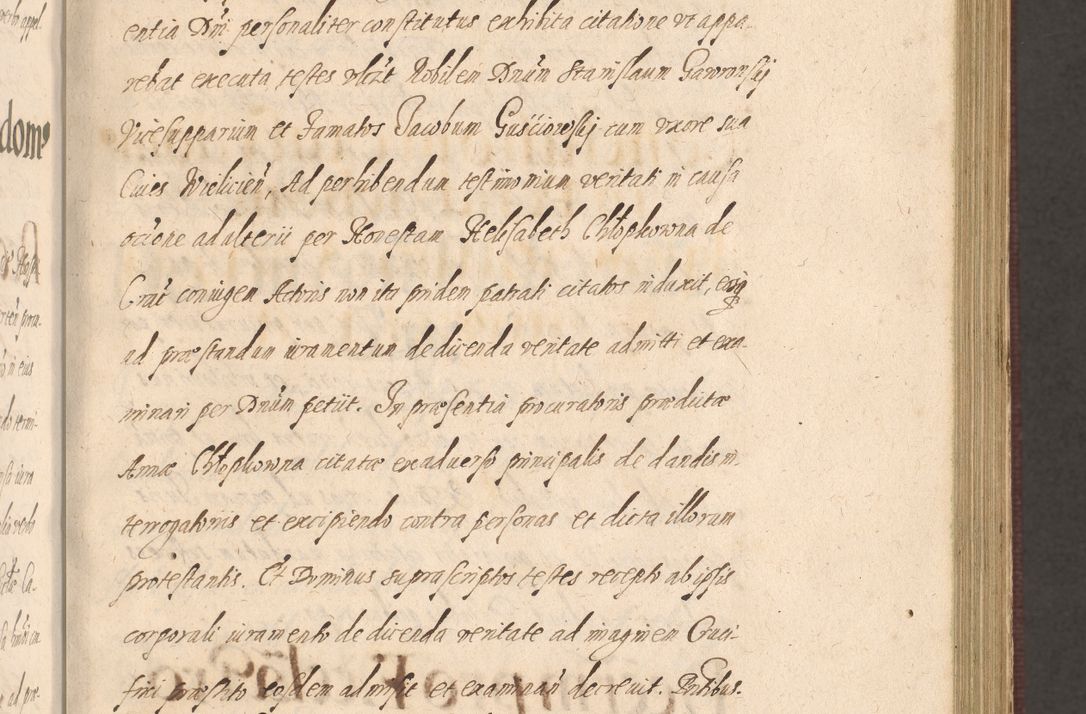 verbo appel.
entia Dni personaliter constitutus exhibita citatione vt appa-
rebat executa, testes vlczt Nobilem Dnum Stanislaum Gawronskij
domo
Vicesupparium et Famatos Jacobum Guśćiowskij cum vxore sua
Ciues Wielicien. Ad perhibendum testimonium veritati in causa
occne adulterii per Honestam Helisabeth Chłopkowna de
Crac coniugem Actoris non ita pridem patrati citatos induxit, eosq
ad præstandum iuramentum de dicenda veritate admitti et exa-
in eius
minari per Dnum petiit. In præsentia procuratoris prædictæ
do termi-
Annæ Chłopkowna citatæ ex aduerso principalis de dandis in-
iura
terrogatoriis et excipiendo contra personas et dicta illorum
verbo
protestantis. Et Dominus suprascriptos testes recepto ab ipsis
Ca-
corporali iuramento de dicenda veritate ad imaginem Cruci-
fixi præstito eosdem admisit et examinari decreuit. Pntibus.
ad præ-